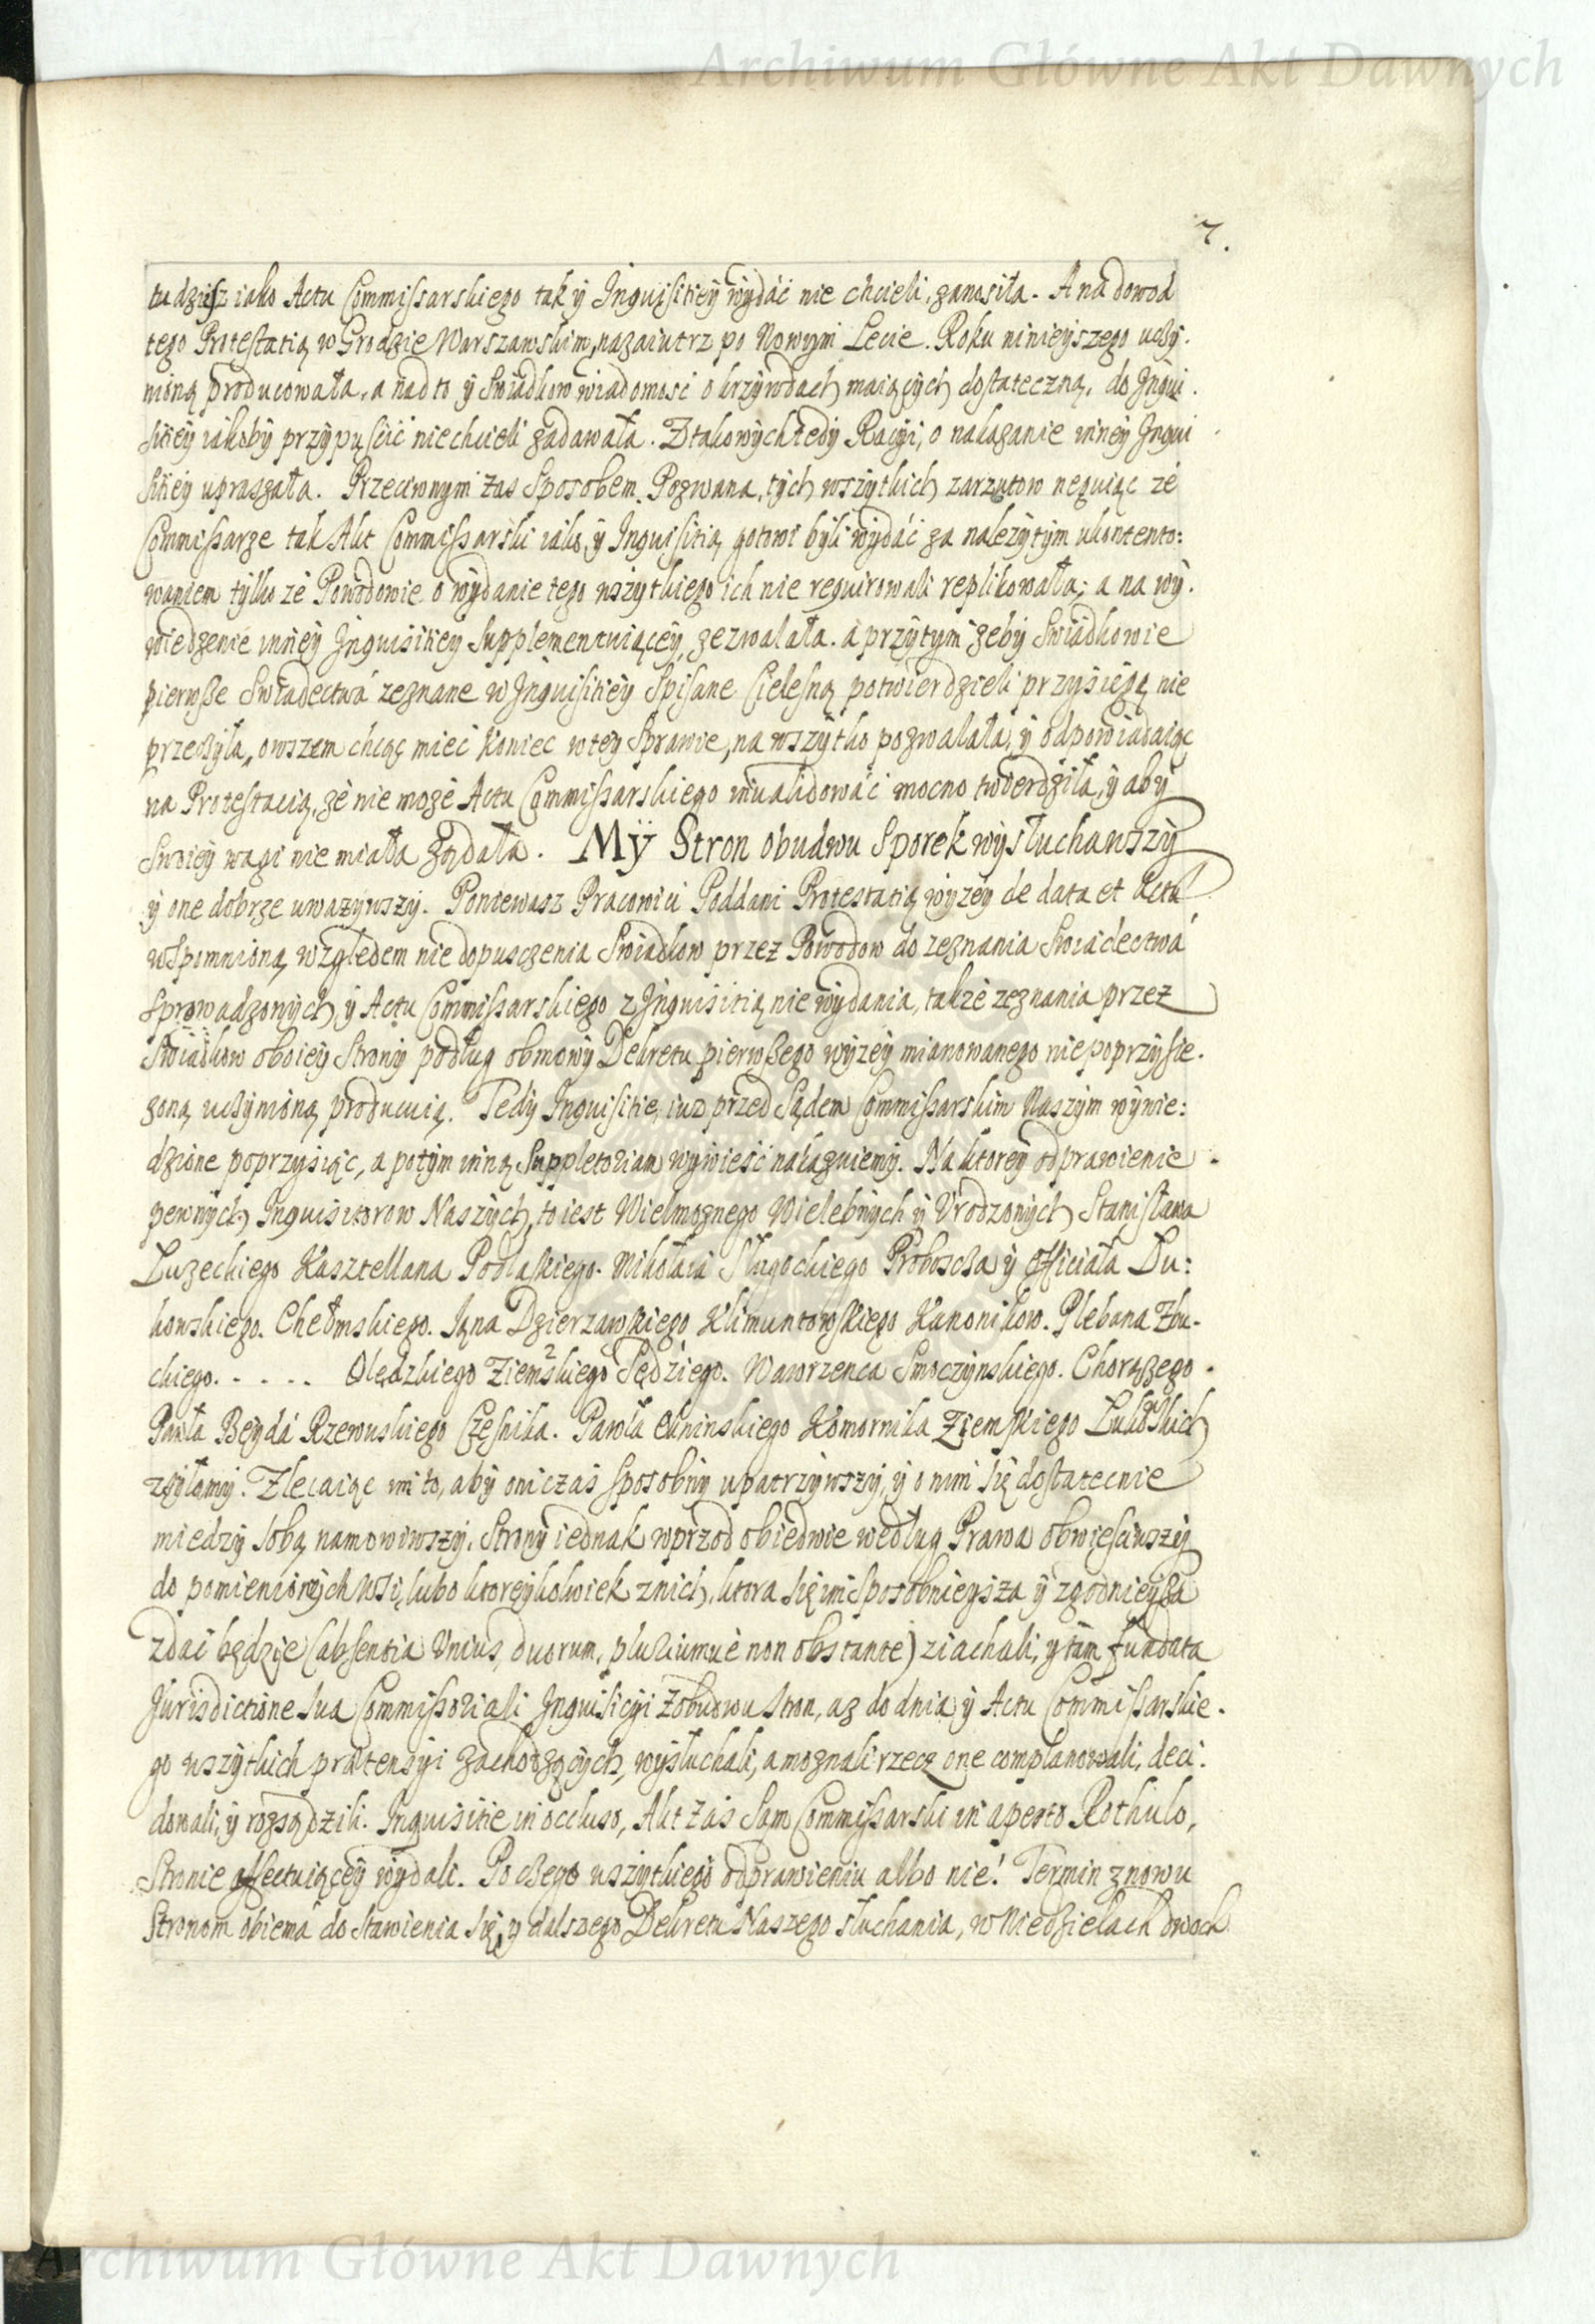 Archiwum Główne Akt Dawnych
7.
tudziesz iako Actu Commissarskiego tak ÿ Inquisitiey wÿdáć nie chcieli, zanosiła. A na dowod
tego Protestatią w Grodzie Warszawskim, nazaiutrz po Nowym Lecie. Roku ninieyszego uczÿ.
nioną producowała, a nad to ÿ Swiadkow wiadomość o krzywdach maiących dostateczną, do Inqui.
sitiey iakoby przÿpuścić niechcieli zadawała. Z takowych tedÿ Racÿi, o nakazanie inney Inqui
sitiey upraszała. Przeciwnym zas Sposobem Pozwana, tÿch wszÿtkich zarzutow neguiąc ze
Commissarze tak Akt Commissarski iako, ÿ Inquisitią gotowi bÿli wÿdáć za nalezÿtÿm ukontento:
waniem tÿlko ze Powodowie o wÿdanie tego wszÿtkiego ich nie requirowali replikowała; a na wÿ.
wiedzenie inney Inquisitiey Supplementuiącey, zezwalała. a przÿtÿm zebÿ Swiadkowie
pierwsze Swiadectwá zeznane w Inquisitiey Spisane Cielesną potwierdzieli przÿsięgą nie
przeczÿła, owszem chcąc mieć koniec w tey Sprawie, na wszÿtko pozwalała, ÿ odpowiadaiąc
na Protestacią, ze nie moze Actu Commissarskiego inualidowáć mocno twierdziła, ÿ abÿ
Swoiey wagi nie miała ządała. Mÿ Stron obudwu Sporek wÿsłuchawszÿ
ÿ one dobrze uwazÿwszÿ. Poniewasz Pracowici Poddani Protestatią wÿzeÿ de data et Actu
wspomnioną, względem nie dopuszczenia Swiadkow przez Powodow do zeznania Swiadectwá
Sprowadzonÿch, ÿ Actu Commissarskiego z Inquisitią nie wÿdania, takze zeznania przez
Swiadkow oboiey Stronÿ podług obmowÿ Dekretu pierwszego wÿzeÿ mianowanego niepoprzÿsie.
zoną uczÿnioną producuią. Tedÿ Inquisitie iuz przed Sądem Commissarskim Naszÿm wÿwie:
dzione poprzÿsiąc, a potÿm inną Suppletoriam wywieść nakazuiemÿ. Na ktorey odprawienie
pewnÿch Inquisitorow Naszÿch, to iest Wielmoznego Wielebnÿch ÿ Vrodzonÿch Stanisława
Łuzeckiego Kasztellana Podlaskiego. Mikołaia Sługockiego Proboscza ÿ Officiała Łu:
kowskiego. Chełmskiego. Iąna Dzierzawskiego Klimuntowskiego Kanonikow. Plebana Zbu.
ckiego. . . . . . Olędzkiego Ziemskiego Sędziego. Wawrzenca Smoczÿnskiego. Chorązego
Pawła Beÿdá Rzewuskiego Cześnika. Pawła Okninskiego Komornika Ziemskiego Łukowskich
zsÿłamÿ. Zlecaiąc im to, abÿ oni czas sposobnÿ upatrzÿwszÿ, ÿ o nim się dostatecnie
miedzÿ sobą namowiwszÿ. Stronÿ iednak wprzod obiedwie według Prawa obwieściwszÿ
do pomienionÿch wsi, lubo ktoreÿkolwiek z nich, ktora się im sposobnieÿsza ÿ zgodnieÿsza
zdai będzie (absentia Vnius, duorum, pluriumuè non obstante) ziachali, ÿ tam fundata
Jurisdictione sua Commissoriali Inquisicÿi z obudwu stron, az do dnia ÿ Actu Commissarskie.
go wszÿtkich prætensÿi zachodzącÿch, wÿsłuchali, a moznali rzecz one complanowali, deci.
dowali, ÿ rozsądzili. Inquisitie in occluso, Akt zas Sam Commissarski in aperto Rothulo,
Stronie affectuiąceÿ wÿdali. Po czego wszÿtkiego odprawieniu albo nie! Termin znowu
Stronom obiema do stawienia się, ÿ dalszego Dekretu Naszego słuchania, w Niedzielach dwoch
Archiwum Główne Akt Dawnych